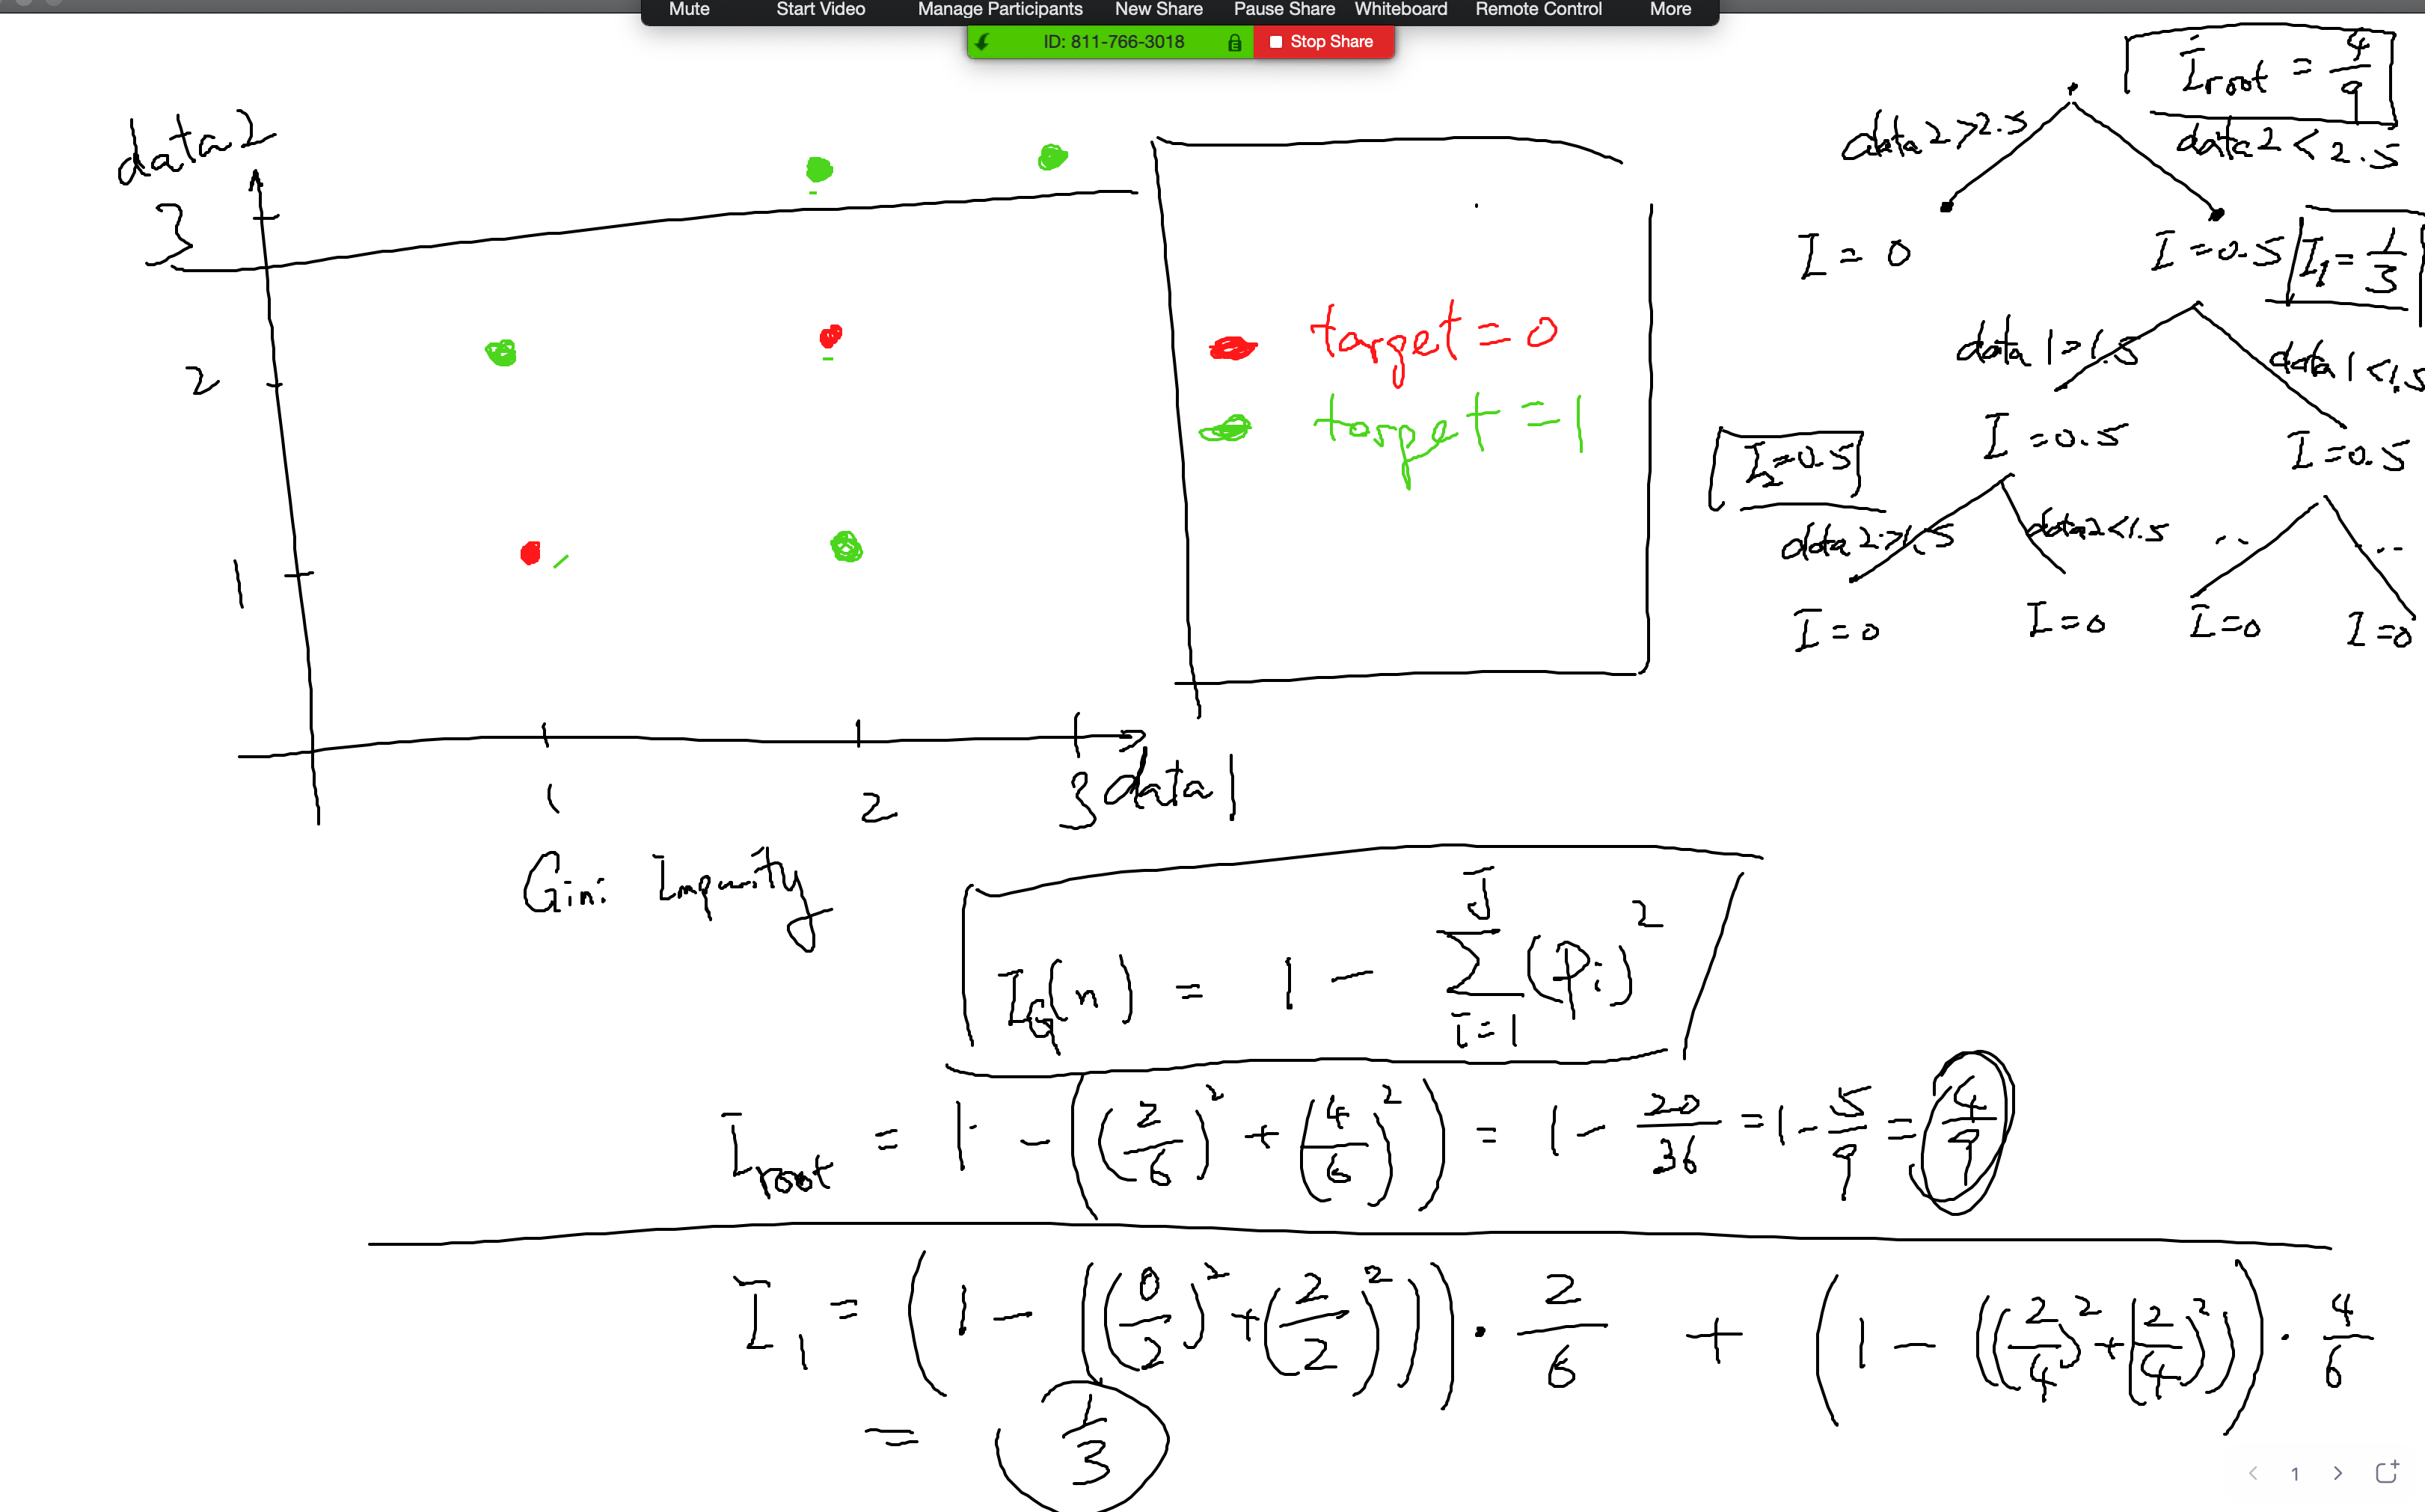 Mute Start Video Manage Participants New Share Pause Share Whiteboard Remote Control More
ID: 811-766-3018 Stop Share
data2
3
2
1
1 2 3 data1
target = 0
target = 1
I root = 4/9
data2 > 2.5 data2 < 2.5
I = 0 I = 0.5 I₁ = 1/3
data1 > 1.5 data1 < 1.5
I₂ = 0.5 I = 0.5 I = 0.5
data2 > 1.5 data2 < 1.5 .. ...
I = 0 I = 0 I = 0 I = 0
Gini Impurity
I_G(n) = 1 − Σ_{i=1}^{J} (pi)²
I root = 1 − ((2/6)² + (4/6)²) = 1 − 20/36 = 1 − 5/9 = 4/9
I₁ = (1 − ((0/2)² + (2/2)²)) · 2/6 + (1 − ((2/4)² + (2/4)²)) · 4/6
= 1/3
1